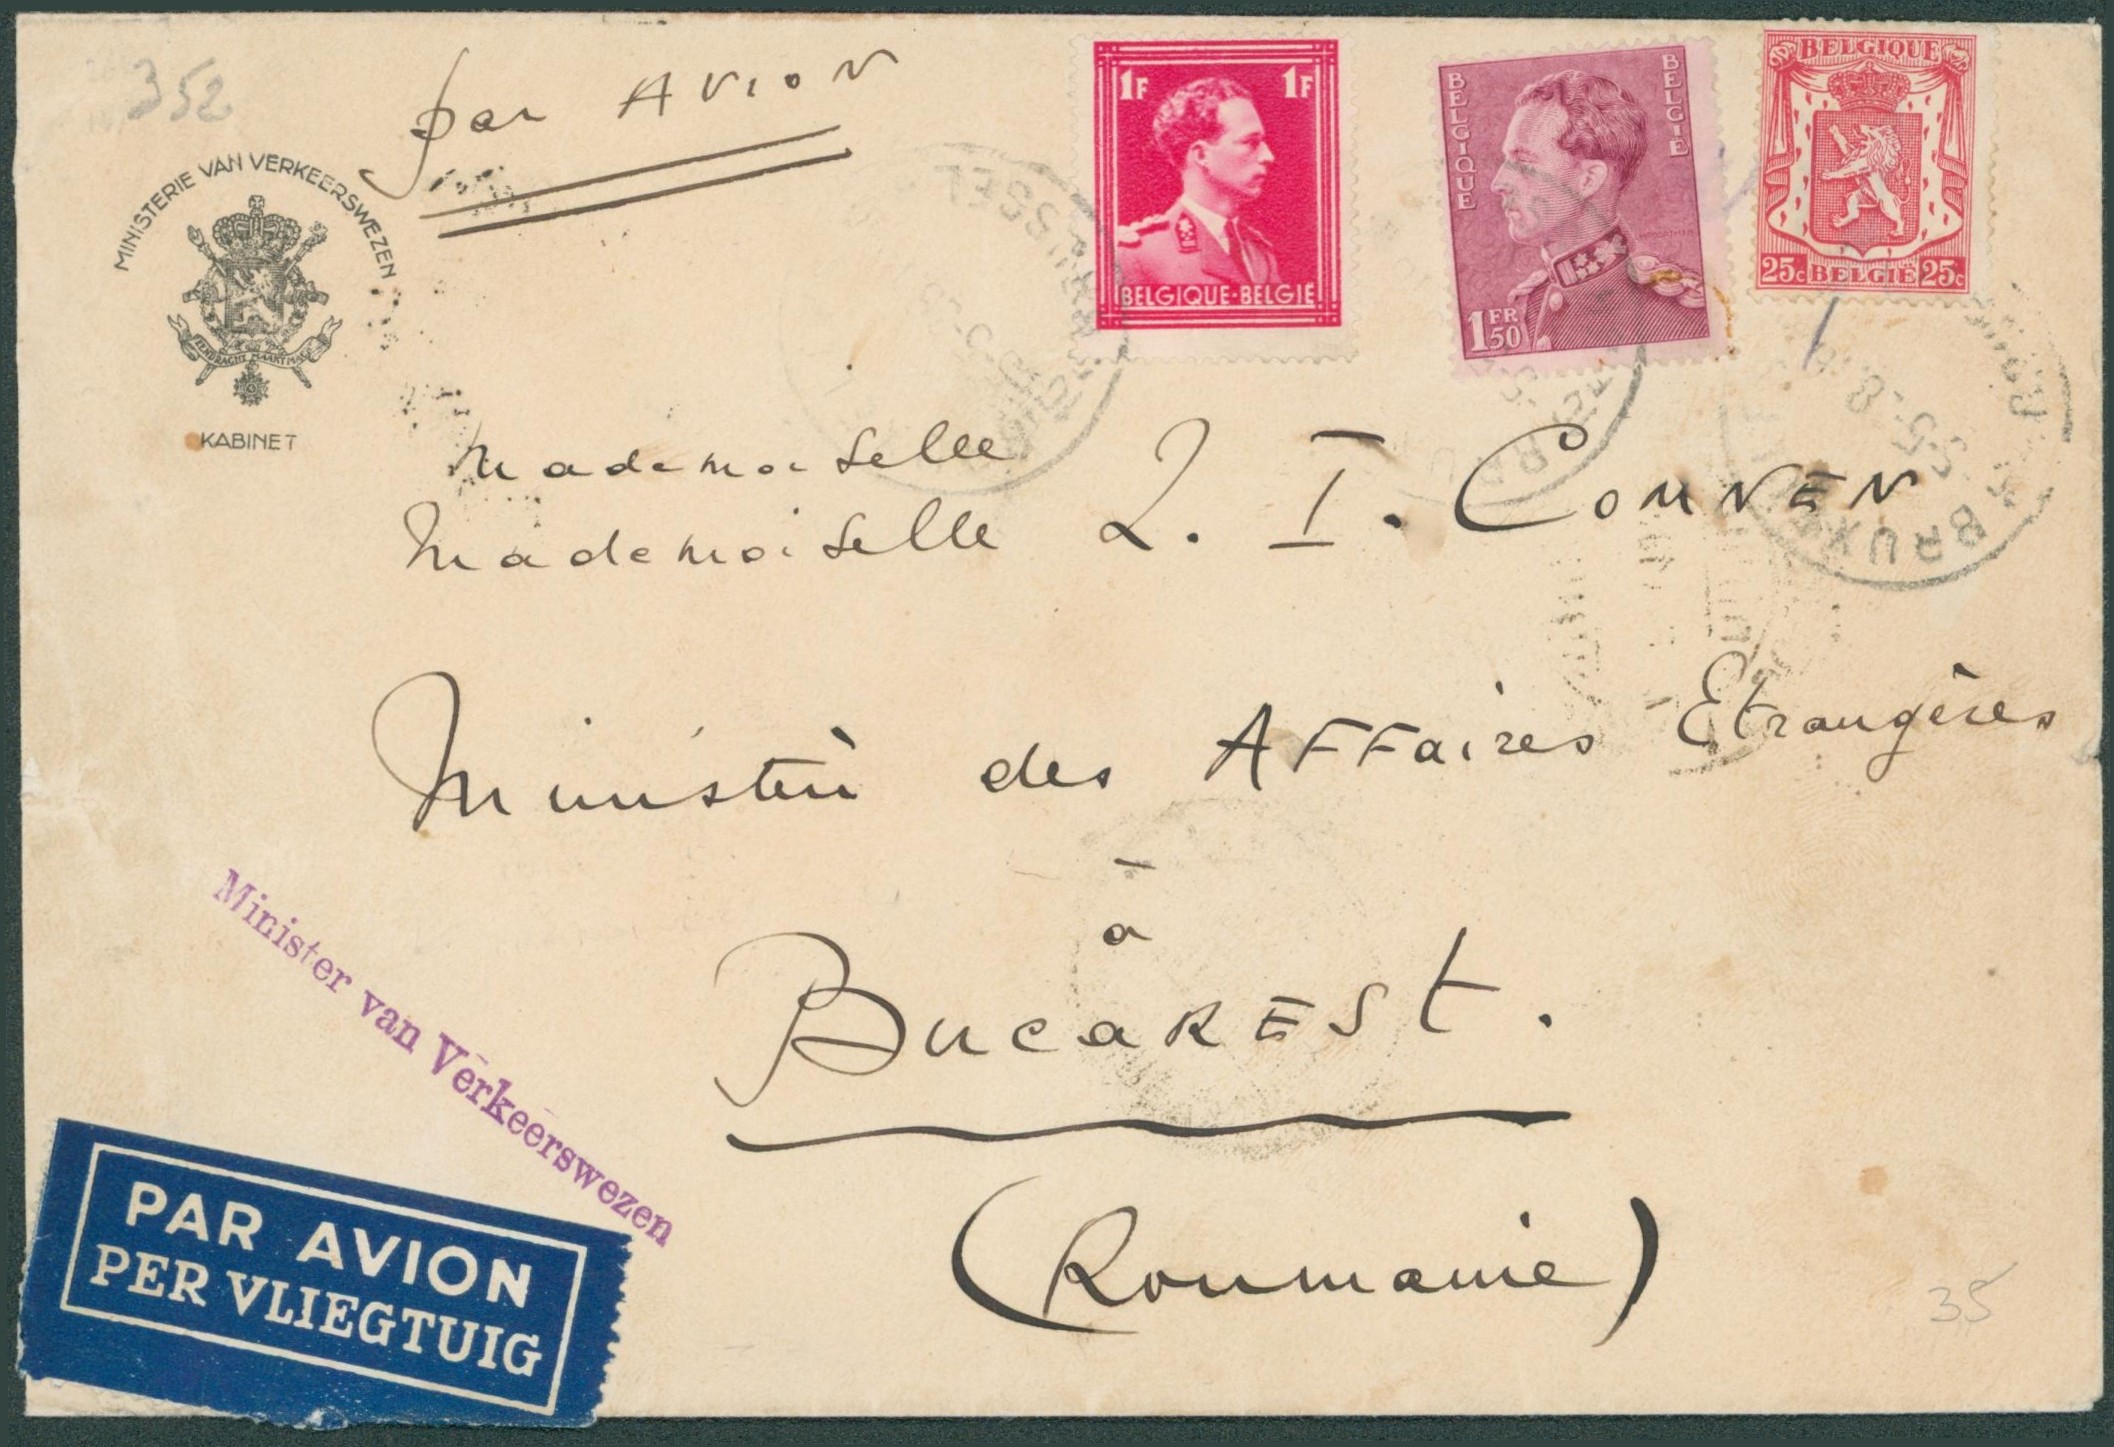 352
par AVION
MINISTERIE VAN VERKEERSWEZEN
EENDRACHT MAAKT MACHT
KABINET
1F 1F
BELGIQUE-BELGIE
BELGIQUE
BELGIË
1FR50
BELGIQUE
25c BELGIË 25c
Mademoiselle
Mademoiselle L. I. COMNEN
Ministère des AFFaires Etrangères
à
BUCAREST.
(Roumanie)
Minister van Verkeerswezen
PAR AVION
PER VLIEGTUIG
35